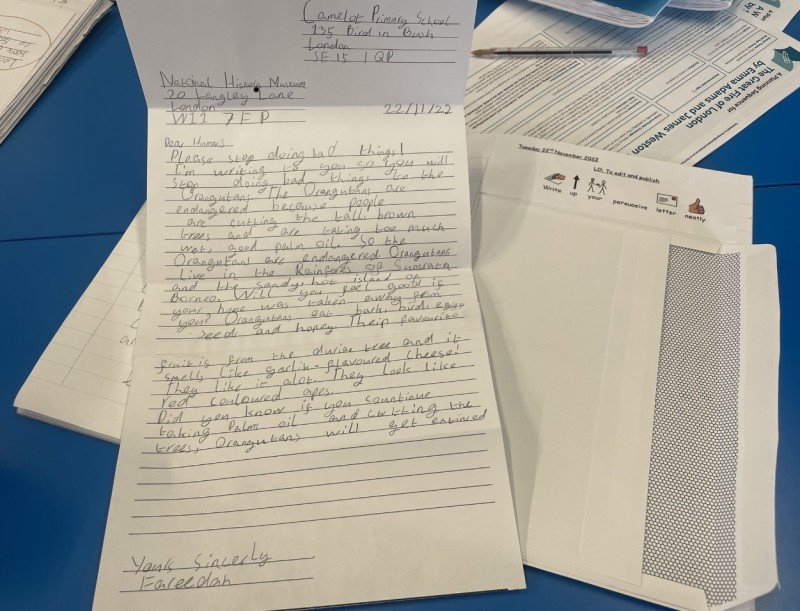 Camelot Primary School
135 Bird in Bush
London
SE 15 1QP
National History Museum
20 Langley Lane
London
W11 7EP
22/11/22
Dear Humans
Please stop doing bad things!
I'm writing to you so you will
stop doing bad things to the
Orangutans. The Orangutans are
endangered because people
are cutting the tall, brown
trees and are taking too much
wet, good palm oil. So the
Orangutans are endangered. Orangutans
live in the Rainforest of Sumratra
and the sandy, hot island of
Borneo. Will you feel good if
your home was taken away from
you? Orangutans eat bark, birds eggs
seeds and honey. Their favourite
fruit is from the durian tree and it
smells like garlic-flavoured cheese!
They like it alot. They look like
red couloured apes.
Did you know if you countinue
taking Palm oil and cutting the
trees, Orangutans will get
Yours Sincerly
Fareedah
Tuesday 22nd November 2022
LO: To edit and publish
Write up your persuasive letter neatly.
A Planning Sequence for
The Great Fire of London
by Emma Adams and James Weston